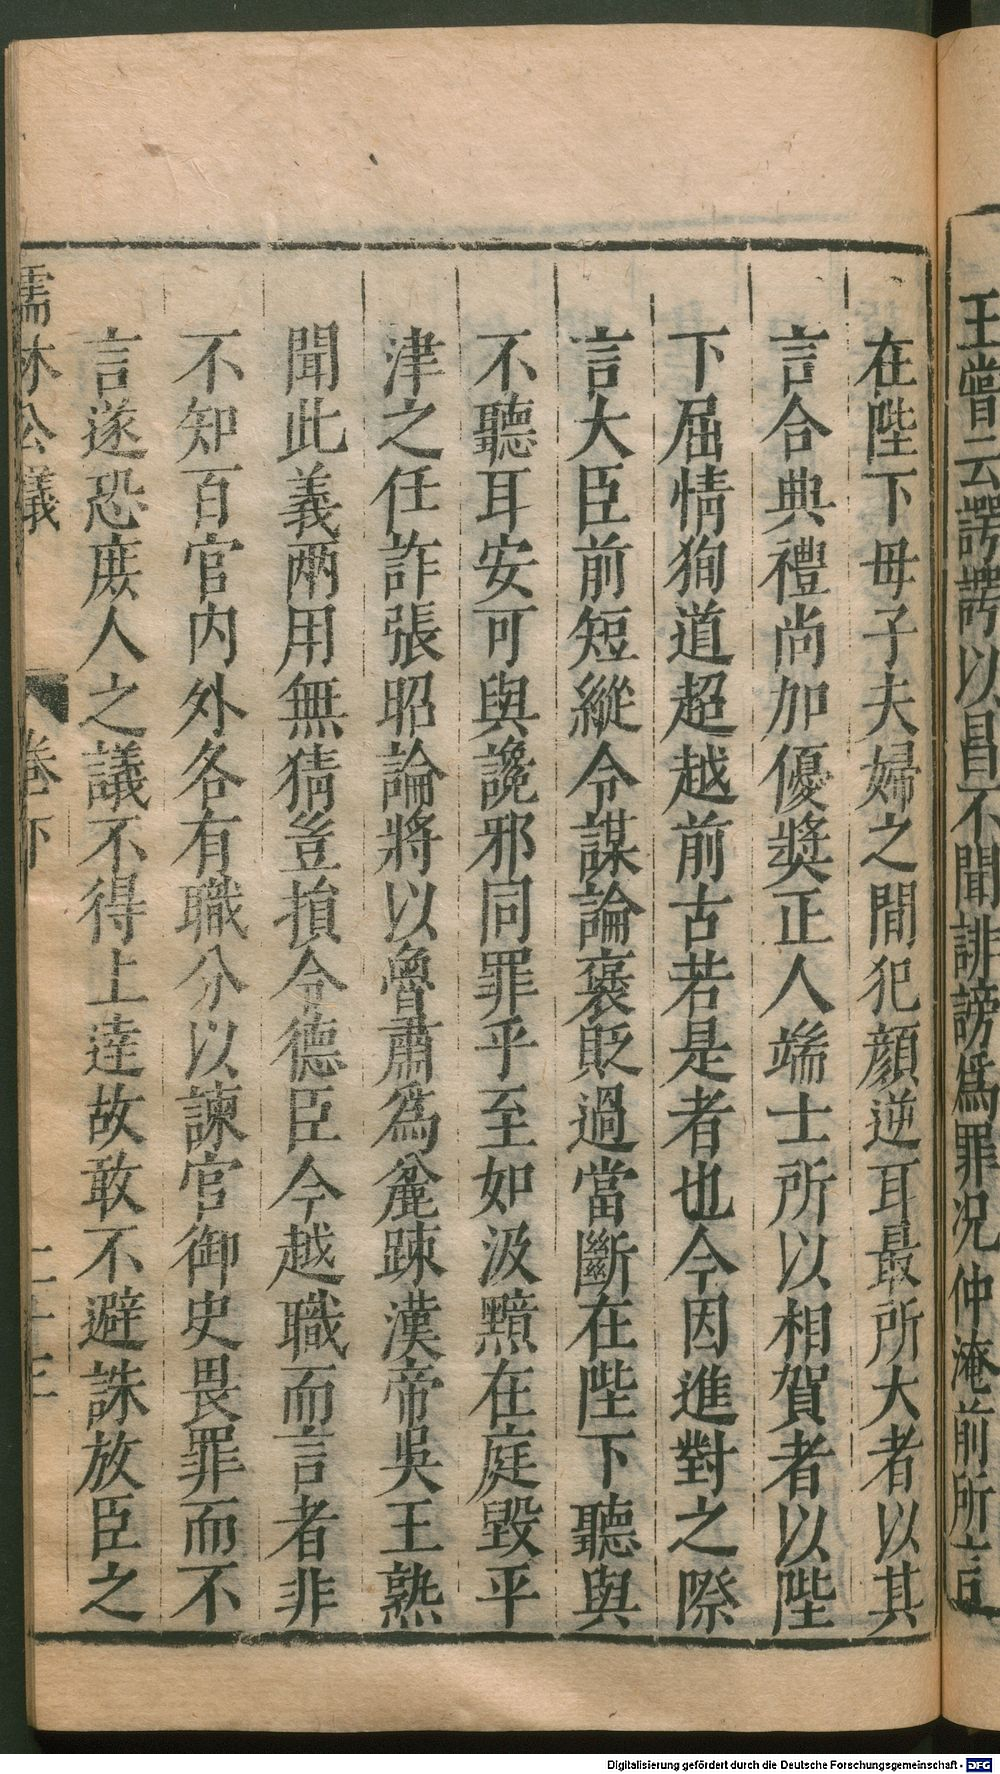 王嘗云諤諤以昌不聞誹謗爲罪況仲淹前所言
在陛下母子夫婦之間犯顔逆耳最所大者以其
言合典禮尚加優奬正人端士所以相賀者以陛
下屈情狥道超越前古若是者也今因進對之際
言大臣前短縱令謀論襃貶過當斷在陛下聽與
不聽耳安可與讒邪同罪乎至如汲黯在庭毀平
津之任詐張昭論將以魯肅爲麄踈漢帝吳王熟
聞此義兩用無猜豈損令德臣今越職而言者非
不知百官内外各有職分以諫官御史畏罪而不
言遂恐庶人之議不得上達故敢不避誅放臣之
儒林公議
卷下
二十三
Digitalisierung gefördert durch die Deutsche Forschungsgemeinschaft - DFG